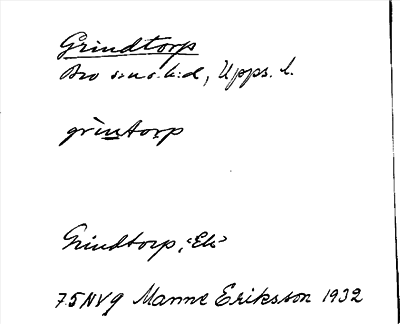 Grindtorp
Bro sn o. h:d, Upps. l.
grìntorp
Grindtorp, "Ek"
75NV9 Manne Eriksson 1932